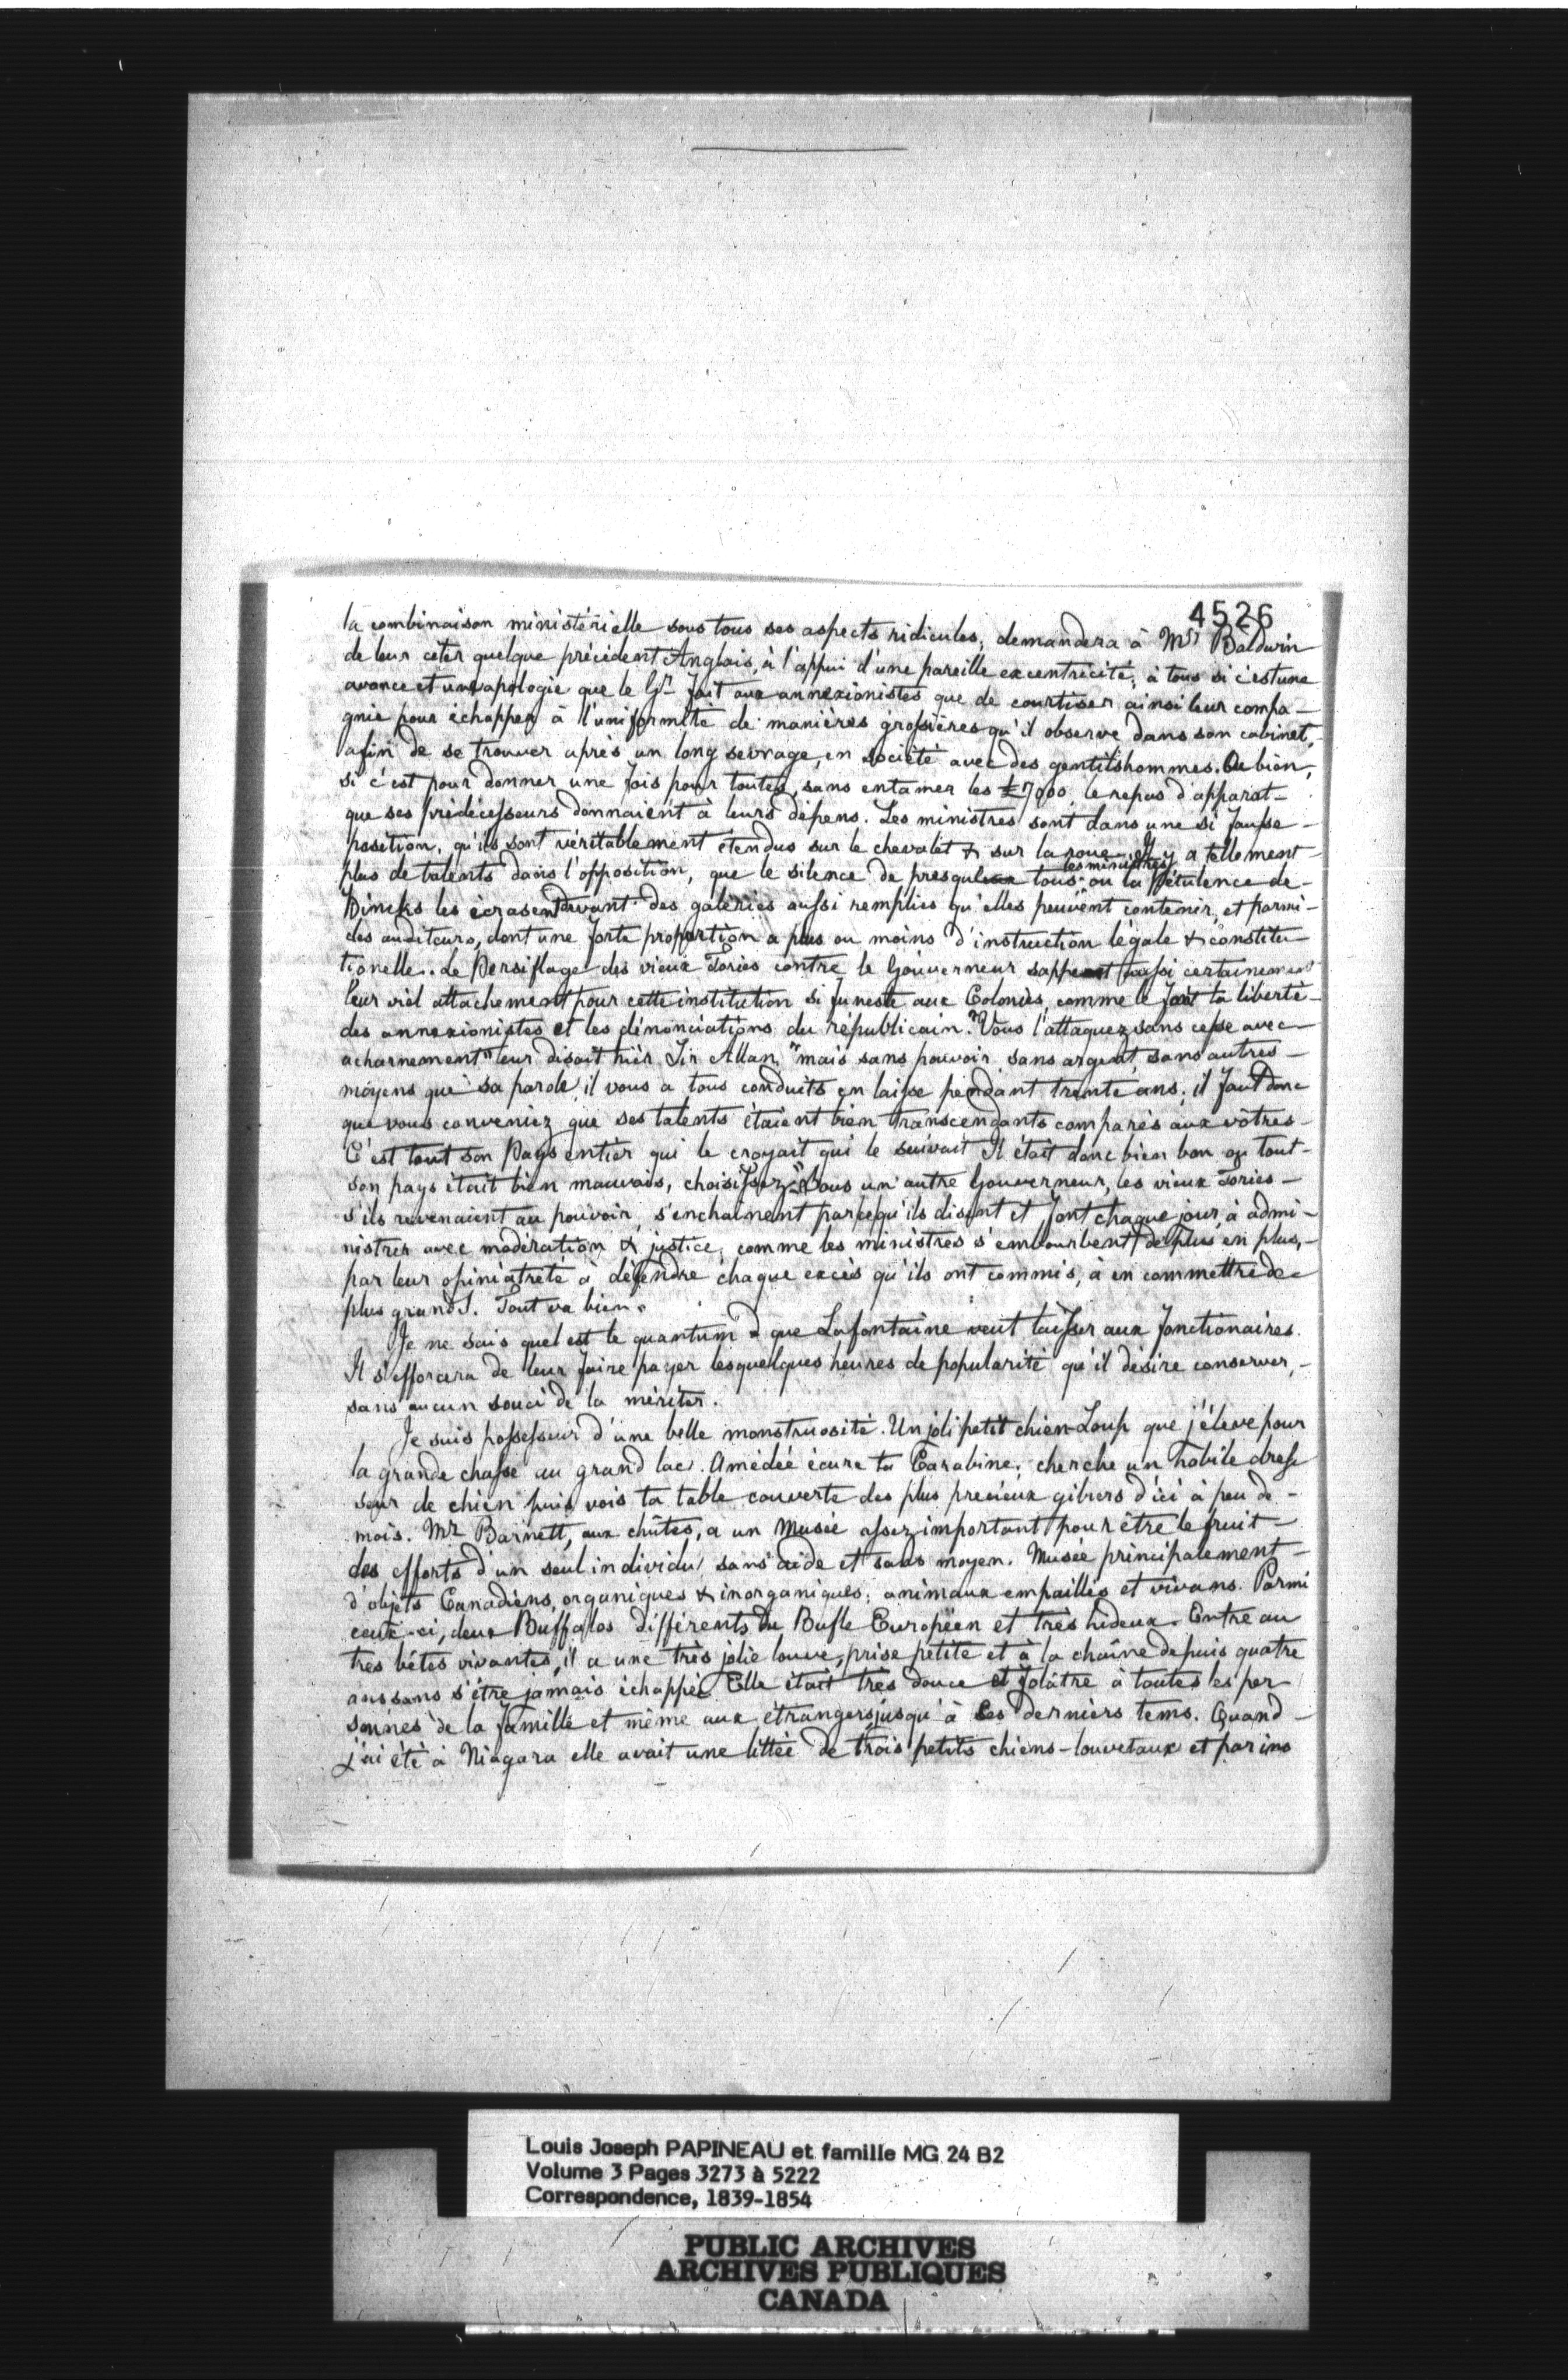 4526
la combinaison ministérielle sous tous ses aspects ridicules, demandera à Mrs Baldwin
de leur citer quelque précédent Anglais, à l'appui d'une pareille excentricité; à tous si c'est une
avance et une apologie que le Gr fait aux annexionistes que de courtiser ainsi leur compa-
gnie pour échapper à l'uniformité de manières grossières qu'il observe dans son cabinet,
afin de se trouver après un long sevrage, en société avec des gentilshommes. Ou bien,
si c'est pour donner une fois pour toutes, sans entamer les £7000, le repas d'apparat-
que ses prédécesseurs donnaient à leurs dépens. Les ministres sont dans une si fausse-
position, qu'ils sont véritablement étendus sur le chevalet & sur la roue. Il y a tellement-
les ministres
plus de talents dans l'opposition, que le silence de presque tous ou la pétulence de-
Hincks les écrasent devant des galeries aussi remplies qu'elles peuvent contenir, et parmi-
des auditeurs, dont une forte proportion a plus ou moins d'instruction légale & constitu-
tionelle. Le Persiflage des vieux Tories contre le Gouverneur sappe aussi certainement
leur viel attachement pour cette institution si funeste aux Colonies, comme le fait la liberté-
des annexionistes et les dénonciations du républicain. "Vous l'attaquez sans cesse avec
acharnement" leur disait hièr Sir Allan, "mais sans pouvoir, sans argent, sans autres-
moyens que sa parole, il vous a tous conduits en laisse pendant trente ans; il faut donc
que vous conveniez que ses talents étaient bien transcendants comparés aux vôtres-
C'est tout son Pays entier qui le croyait qui le suivait Il était donc bien bon ou tout-
son pays était bien mauvais, choisissez." Sous un autre Gouverneur, les vieux Tories-
s'ils revenaient au pouvoir, s'enchainent parcequ'ils disent et font chaque jour, à admi-
nistrer avec modération & justice, comme les ministres s'embourbent de plus en plus,-
par leur opiniâtreté à défendre chaque excès qu'ils ont commis, à en commettre de
plus grands. Tout va bien.
Je ne sais quel est le quantum que Lafontaine veut laisser aux fonctionaires.
Il s'efforcera de leur faire payer les quelques heures de popularité qu'il désire conserver,-
sans aucun souci de la mériter.
Je suis possesseur d'une belle monstruosité. Un joli petit chien-Loup que j'élève pour
la grande chasse au grand lac. Amédée écure ta Carabine; cherche un habile dres
seur de chien puis vois ta table couverte des plus precieux gibiers d'ici à peu de-
mois. Mr Barnett, aux chûtes, a un Musée assez important pour être le fruit-
des efforts d'un seul individu, sans aide et sans moyen. Musée principalement-
d'objets Canadiens, organiques & inorganiques; animaux empaillés et vivans. Parmi
ceux-ci, deux Buffalos différents du Bufle Européen et très hideux. Entre au
tres bêtes vivantes, il a une très jolie louve, prise petite et à la chaîne depuis quatre
ans sans s'être jamais échappée. Elle était très douce et folâtre à toutes les per
sonnes de la famille et même aux étrangers jusqu'à ces derniers tems. Quand-
j'ai été à Niagara elle avait une littée de trois petits chiens-louvetaux et par ins
Louis Joseph PAPINEAU et famille MG 24 B2
Volume 3 Pages 3273 à 5222
Correspondence, 1839-1854
PUBLIC ARCHIVES
ARCHIVES PUBLIQUES
CANADA